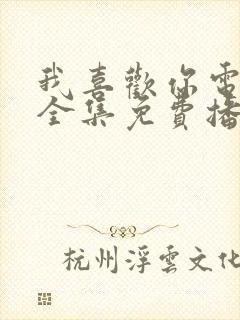 我喜歡你電
全集免費播
杭州浮雲文化